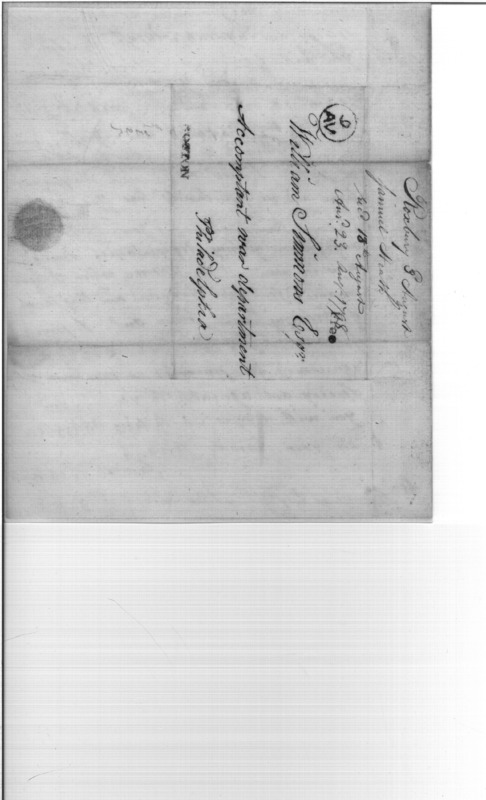 Roxbury 8 August
Samuel Heath
recd 18 August
Ans. 23 Augt 1798
9
AV
William Simmons Esqr
Accomptant war department
Philadelphia
BOSTON